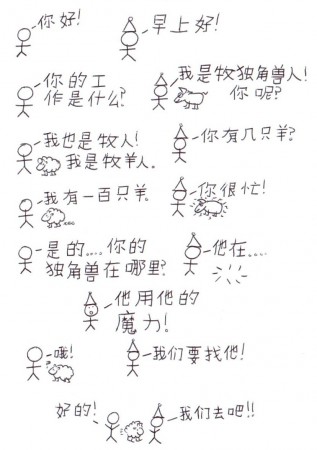 你好!
早上好!
你的工
作是什么?
我是牧独角兽人!
你呢?
我也是牧人!
我是牧羊人。
你有几只羊?
我有一百只羊。
你很忙!
是的....你的
独角兽在哪里?
他在....
他用他的
魔力!
哦!
我们要找他!
好的!
我们去吧!!